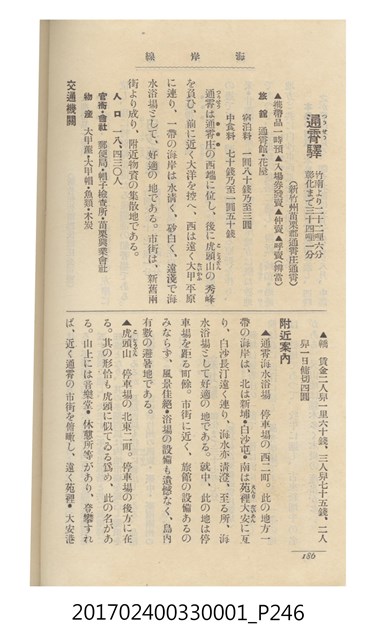 海岸線
通霄驛
つうせう
竹南より二十二哩六分
彰化まで三十四哩一分
（新竹州苗栗郡通霄庄通霄）
▲携帶品一時預▲入場券發賣▲仲賣▲呼賣（辨當）
旅館 通霄館・花屋
宿泊料 一圓八十錢乃至三圓
中食料 七十錢乃至一圓五十錢
通霄は通霄庄の西端に位し、後に虎頭山の秀峰
を負ひ、前に近く大洋を控へ、西は遠く大甲平原
に連り、一帶の海岸は水清く、砂白く、遠淺で海
水浴場として、好適の地である。市街は、新舊兩
街より成り、附近物資の集散地である。
人口 一八、四三〇人
官衙・會社 郵便局・帽子檢查所・苗栗興業會社
物産 大甲蓆・大甲帽・魚類・木炭
交通機關
▲轎 賃金二人舁一里六十錢、三人舁七十五錢、二人
舁一日傭切四圓
附近案內
▲通霄海水浴場 停車場の西二町。此の地方一
帶の海岸は、北は新埔・白沙屯・南は苑裡大安に互
り、白沙長汀遠く連り、海水亦清澄、至る所、海
水浴場として好適の地である。就中、此の地は停
車場を距る町餘。市街に近く、旅館の設備あるの
みならず、風景佳絕・浴場の設備も遺憾なく、島內
有數の避暑地である。
▲虎頭山 停車場の北東二町。停車場の後方に在
る。其の形恰も虎頭に似てゐる爲め、此の名があ
る。山上には音樂堂・休憩所等があり、登攀すれ
ば、近く通霄の市街を俯瞰し、遠く苑裡・大安港
186
201702400330001_P246